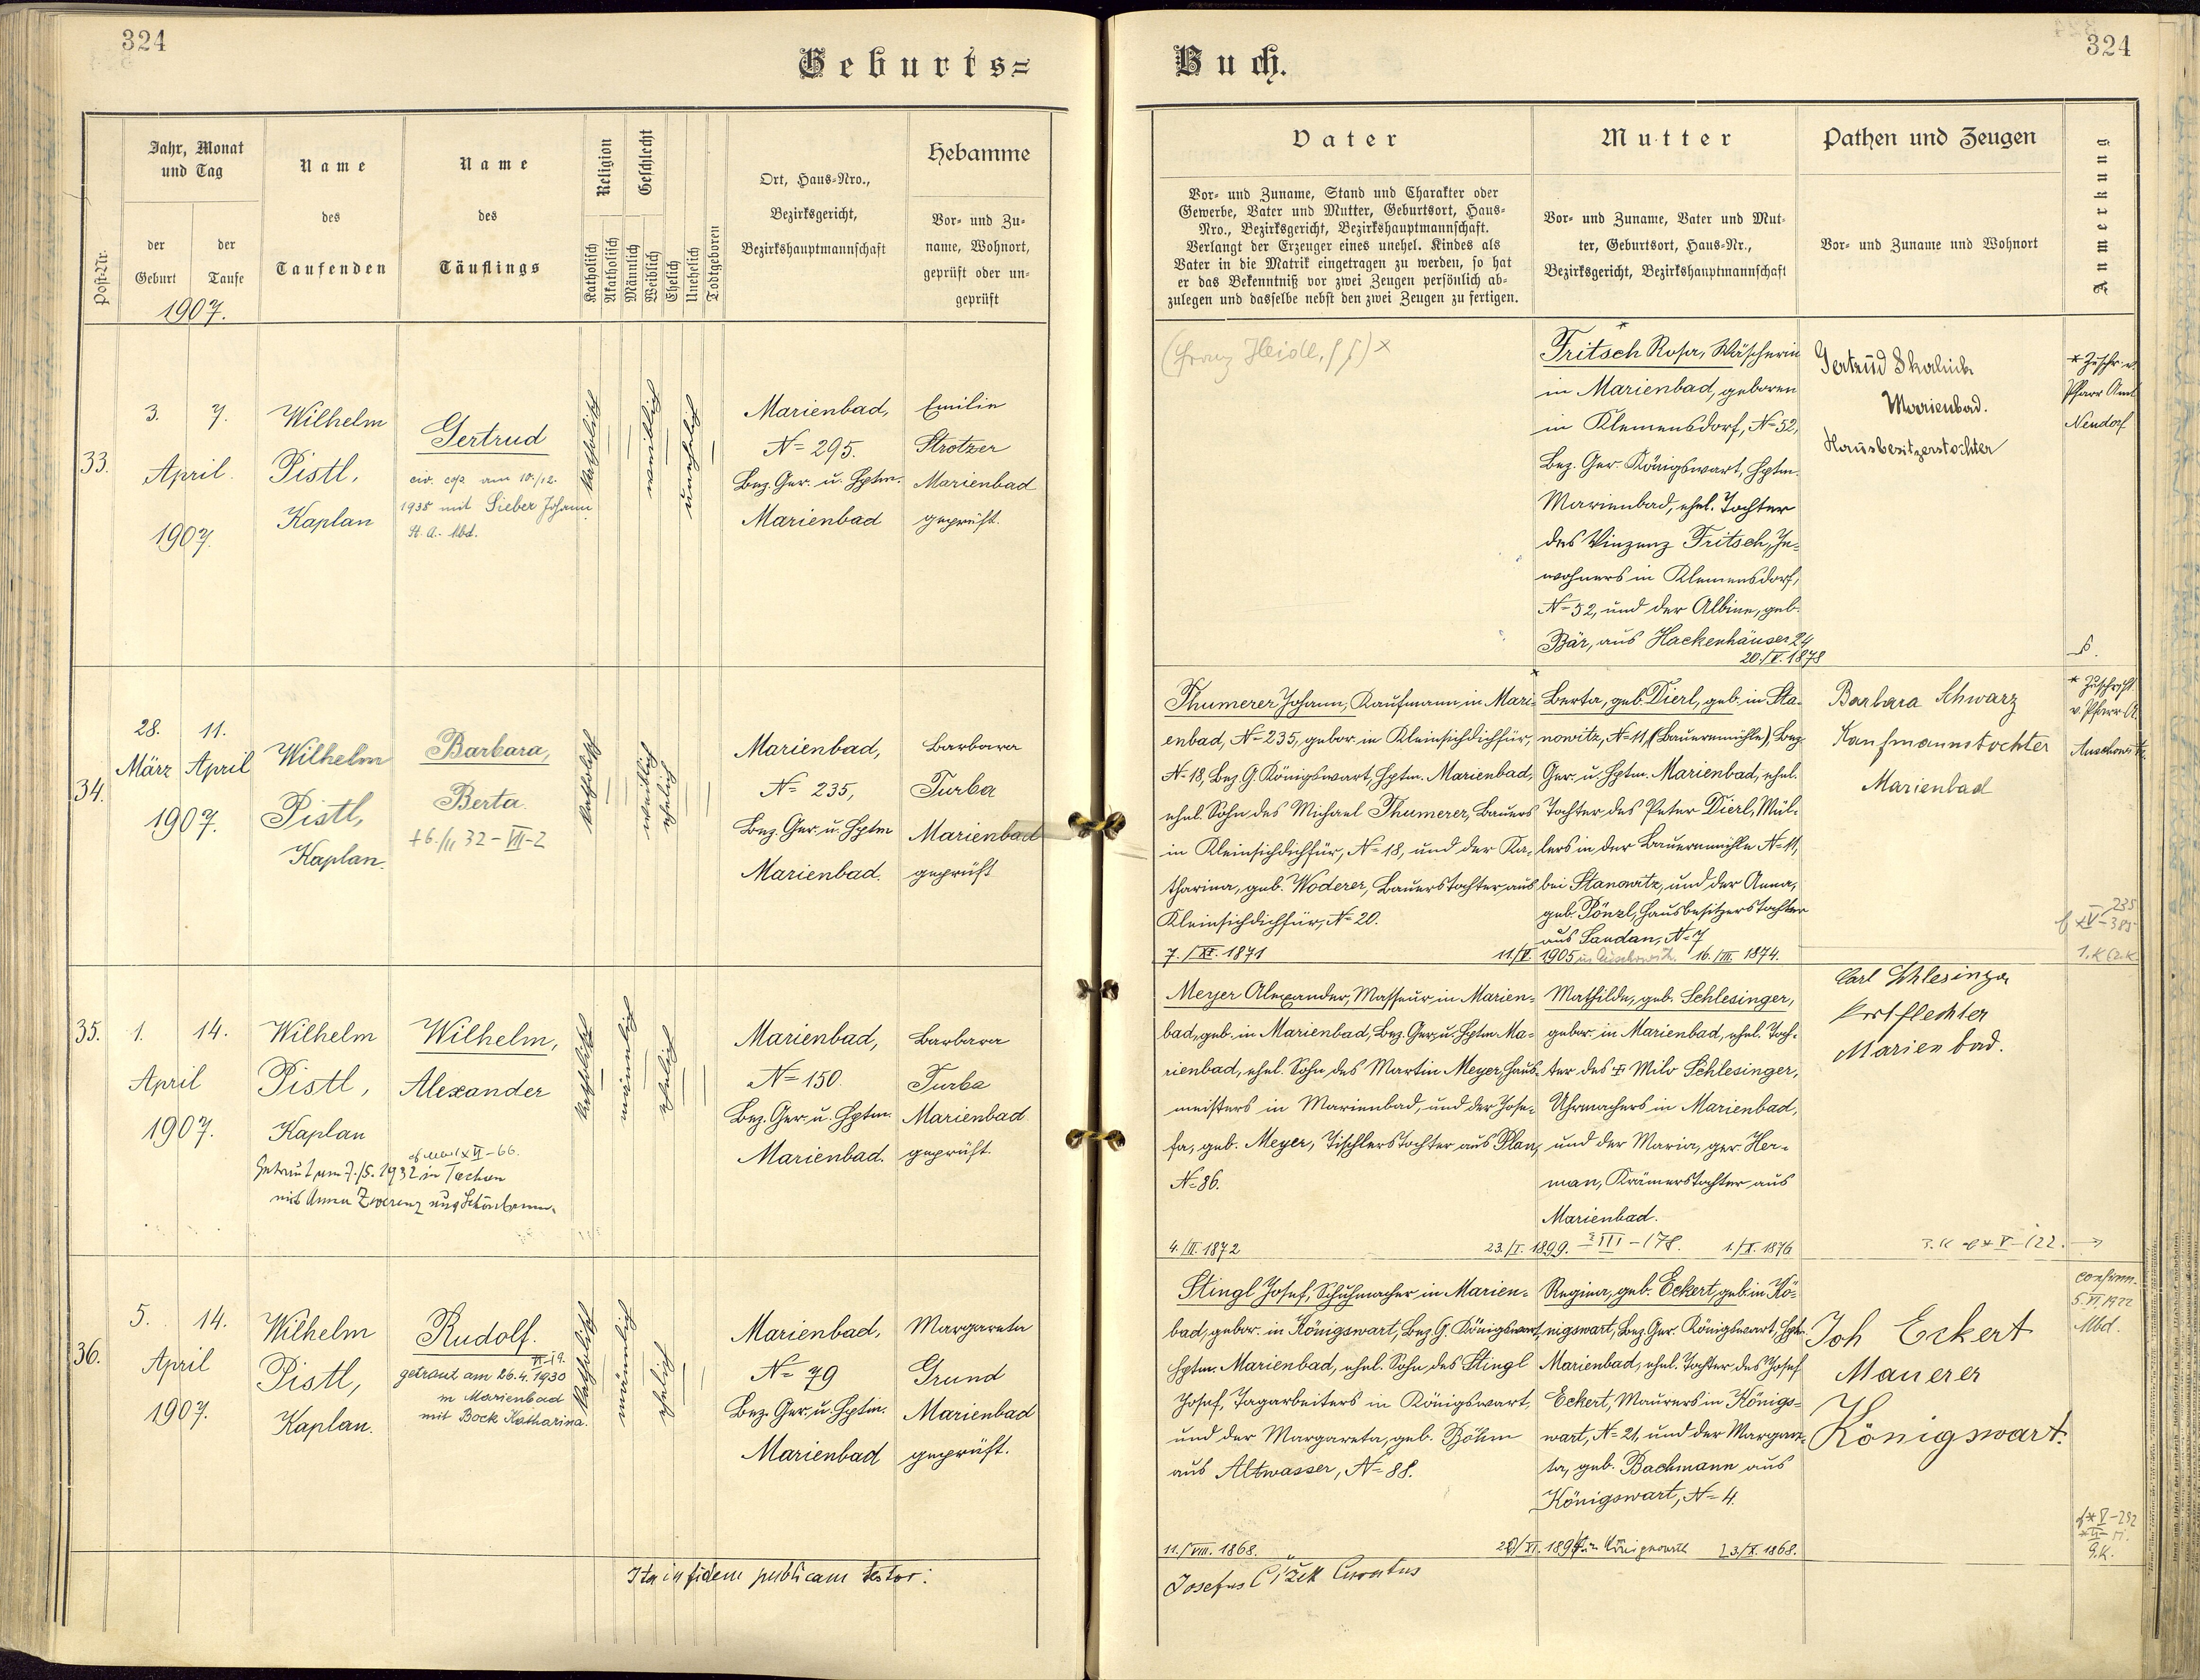 324
Geburts=
Jahr, Monat
und Tag
der
Geburt
der
Taufe
1907.
Post-Nr.
Name
des
Taufenden
Name
des
Täuflings
Religion
Katholisch
Akatholisch
Geschlecht
Männlich
Weiblich
Ehelich
Unehelich
Todtgeboren
Ort, Haus-Nro.,
Bezirksgericht,
Bezirkshauptmannschaft
Hebamme
Vor- und Zu-
name, Wohnort,
geprüft oder un-
geprüft
33.
3. 7.
April
1907.
Wilhelm
Pistl,
Kaplan
Gertrud
civ. cop. am 10./12.
1938 mit Sieber Johann
St. A. Mbd.
katholisch
weiblich
unehelich
Marienbad,
N= 295.
Bez. Ger. u. Hptm.
Marienbad
Emilie
Strotzer
Marienbad
geprüft.
34.
28. 11.
März April
1907.
Wilhelm
Pistl,
Kaplan.
Barbara,
Berta.
+6./II 32 - VII-2
katholisch
weiblich
ehelich
Marienbad,
N= 235,
Bez. Ger. u. Hptm
Marienbad.
Barbara
Turba
Marienbad
geprüft
35.
1. 14.
April
1907.
Wilhelm
Pistl,
Kaplan
Wilhelm,
Alexander
VI-66.
Getraut am 7./5. 1932 in
mit Anna Zwerenz aus Schönbrunn.
katholisch
männlich
ehelich
Marienbad,
N= 150.
Bez. Ger. u. Hptm.
Marienbad.
Barbara
Turba
Marienbad
geprüft.
36.
5. 14.
April
1907.
Wilhelm
Pistl,
Kaplan.
Rudolf.
VI-19.
getraut am 26.4.1930
in Marienbad
mit Bock Katharina.
katholisch
männlich
ehelich
Marienbad,
N= 79
Bez. Ger. u. Hptm.
Marienbad
Margareta
Grund
Marienbad
geprüft.
Ita in fidem publicam testor:
324
Buch.
Vater
Vor- und Zuname, Stand und Charakter oder
Gewerbe, Vater und Mutter, Geburtsort, Haus-
Nro., Bezirksgericht, Bezirkshauptmannschaft.
Verlangt der Erzeuger eines unehel. Kindes als
Vater in die Matrik eingetragen zu werden, so hat
er das Bekenntniß vor zwei Zeugen persönlich ab-
zulegen und dasselbe nebst den zwei Zeugen zu fertigen.
Mutter
Vor- und Zuname, Vater und Mut-
ter, Geburtsort, Haus-Nr.,
Bezirksgericht, Bezirkshauptmannschaft
Pathen und Zeugen
Vor- und Zuname und Wohnort
Anmerkung
(Franz Heidl,
Fritsch Rosa, Wäscherin
in Marienbad, geboren
in Klemensdorf, N= 52,
Bez. Ger. Königswart, Hptm.
Marienbad, ehel. Tochter
des Vinzenz Fritsch, In-
wohners in Klemensdorf,
N= 52, und der Albine, geb.
Bär, aus Hackenhäuser 24
20./V. 1878
Gertrud Skalicke
Marienbad.
Hausbesitzerstochter
* Zuschr. v.
Pfarr Amt
Neudorf
Thumerer Johann, Kaufmann in Mari-
enbad, N= 235, gebor. in Kleinsichdichfür,
N= 18, Bez. G. Königswart, Hptm. Marienbad,
ehel. Sohn des Michael Thumerer, Bauers
in Kleinsichdichfür, N= 18, und der Ka-
tharina, geb. Woderer, Bauerstochter aus
Kleinsichdichfür, N= 20.
7./XI. 1871
11/V. 1905
Berta, geb. Dierl, geb. in Sta-
nowitz, N= 11, (Bauernmühle), Bez.
Ger. u. Hptm. Marienbad, ehel.
Tochter des Peter Dierl, Mül-
lers in der Bauernmühle N= 11,
bei Stanowitz, und der Anna,
geb. Pönzl, Hausbesitzerstochter
aus Sandau, N= 7
16./III. 1874.
Barbara Schwarz
Kaufmannstochter
Marienbad
* Zuschrift
v. Pfarr A.
Auschowitz
235
V-385
Meyer Alexander, Masseur in Marien-
bad, geb. in Marienbad, Bez. Ger. u. Hptm. Ma-
rienbad, ehel. Sohn des Martin Meyer, Haus-
meisters in Marienbad, und der Jose-
fa, geb. Meyer, Tischlerstochter aus Plan,
N= 86.
4./III. 1872
23./I. 1899.
Mathilde, geb. Schlesinger,
gebor. in Marienbad, ehel. Toch-
ter des + Milo Schlesinger,
Uhrmachers in Marienbad,
und der Maria, geb. Her-
man, Krämerstochter aus
Marienbad.
III-178.
1./X. 1876
Carl Schlesinger
Korbflechter
Marienbad.
V-122.
Stingl Josef, Schuhmacher in Marien-
bad, gebor. in Königswart, Bez. G. Königswart,
Hptm. Marienbad, ehel. Sohn des Stingl
Josef, Tagarbeiters in Königswart,
und der Margareta, geb. Böhm
aus Altwasser, N= 88.
11./VIII. 1868.
Regina, geb. Eckert, geb. in Kö-
nigswart, Bez. Ger. Königswart, Hptm.
Marienbad, ehel. Tochter des Josef
Eckert, Maurers in Königs-
wart, N= 21, und der Margare-
ta, geb. Bachmann aus
Königswart, N= 4.
13./X. 1868.
Joh Eckert
Mauerer
Königswart.
confirm.
5.VI.1922
Mbd.
V-292
9.K.
Josefus Čížek Curatus